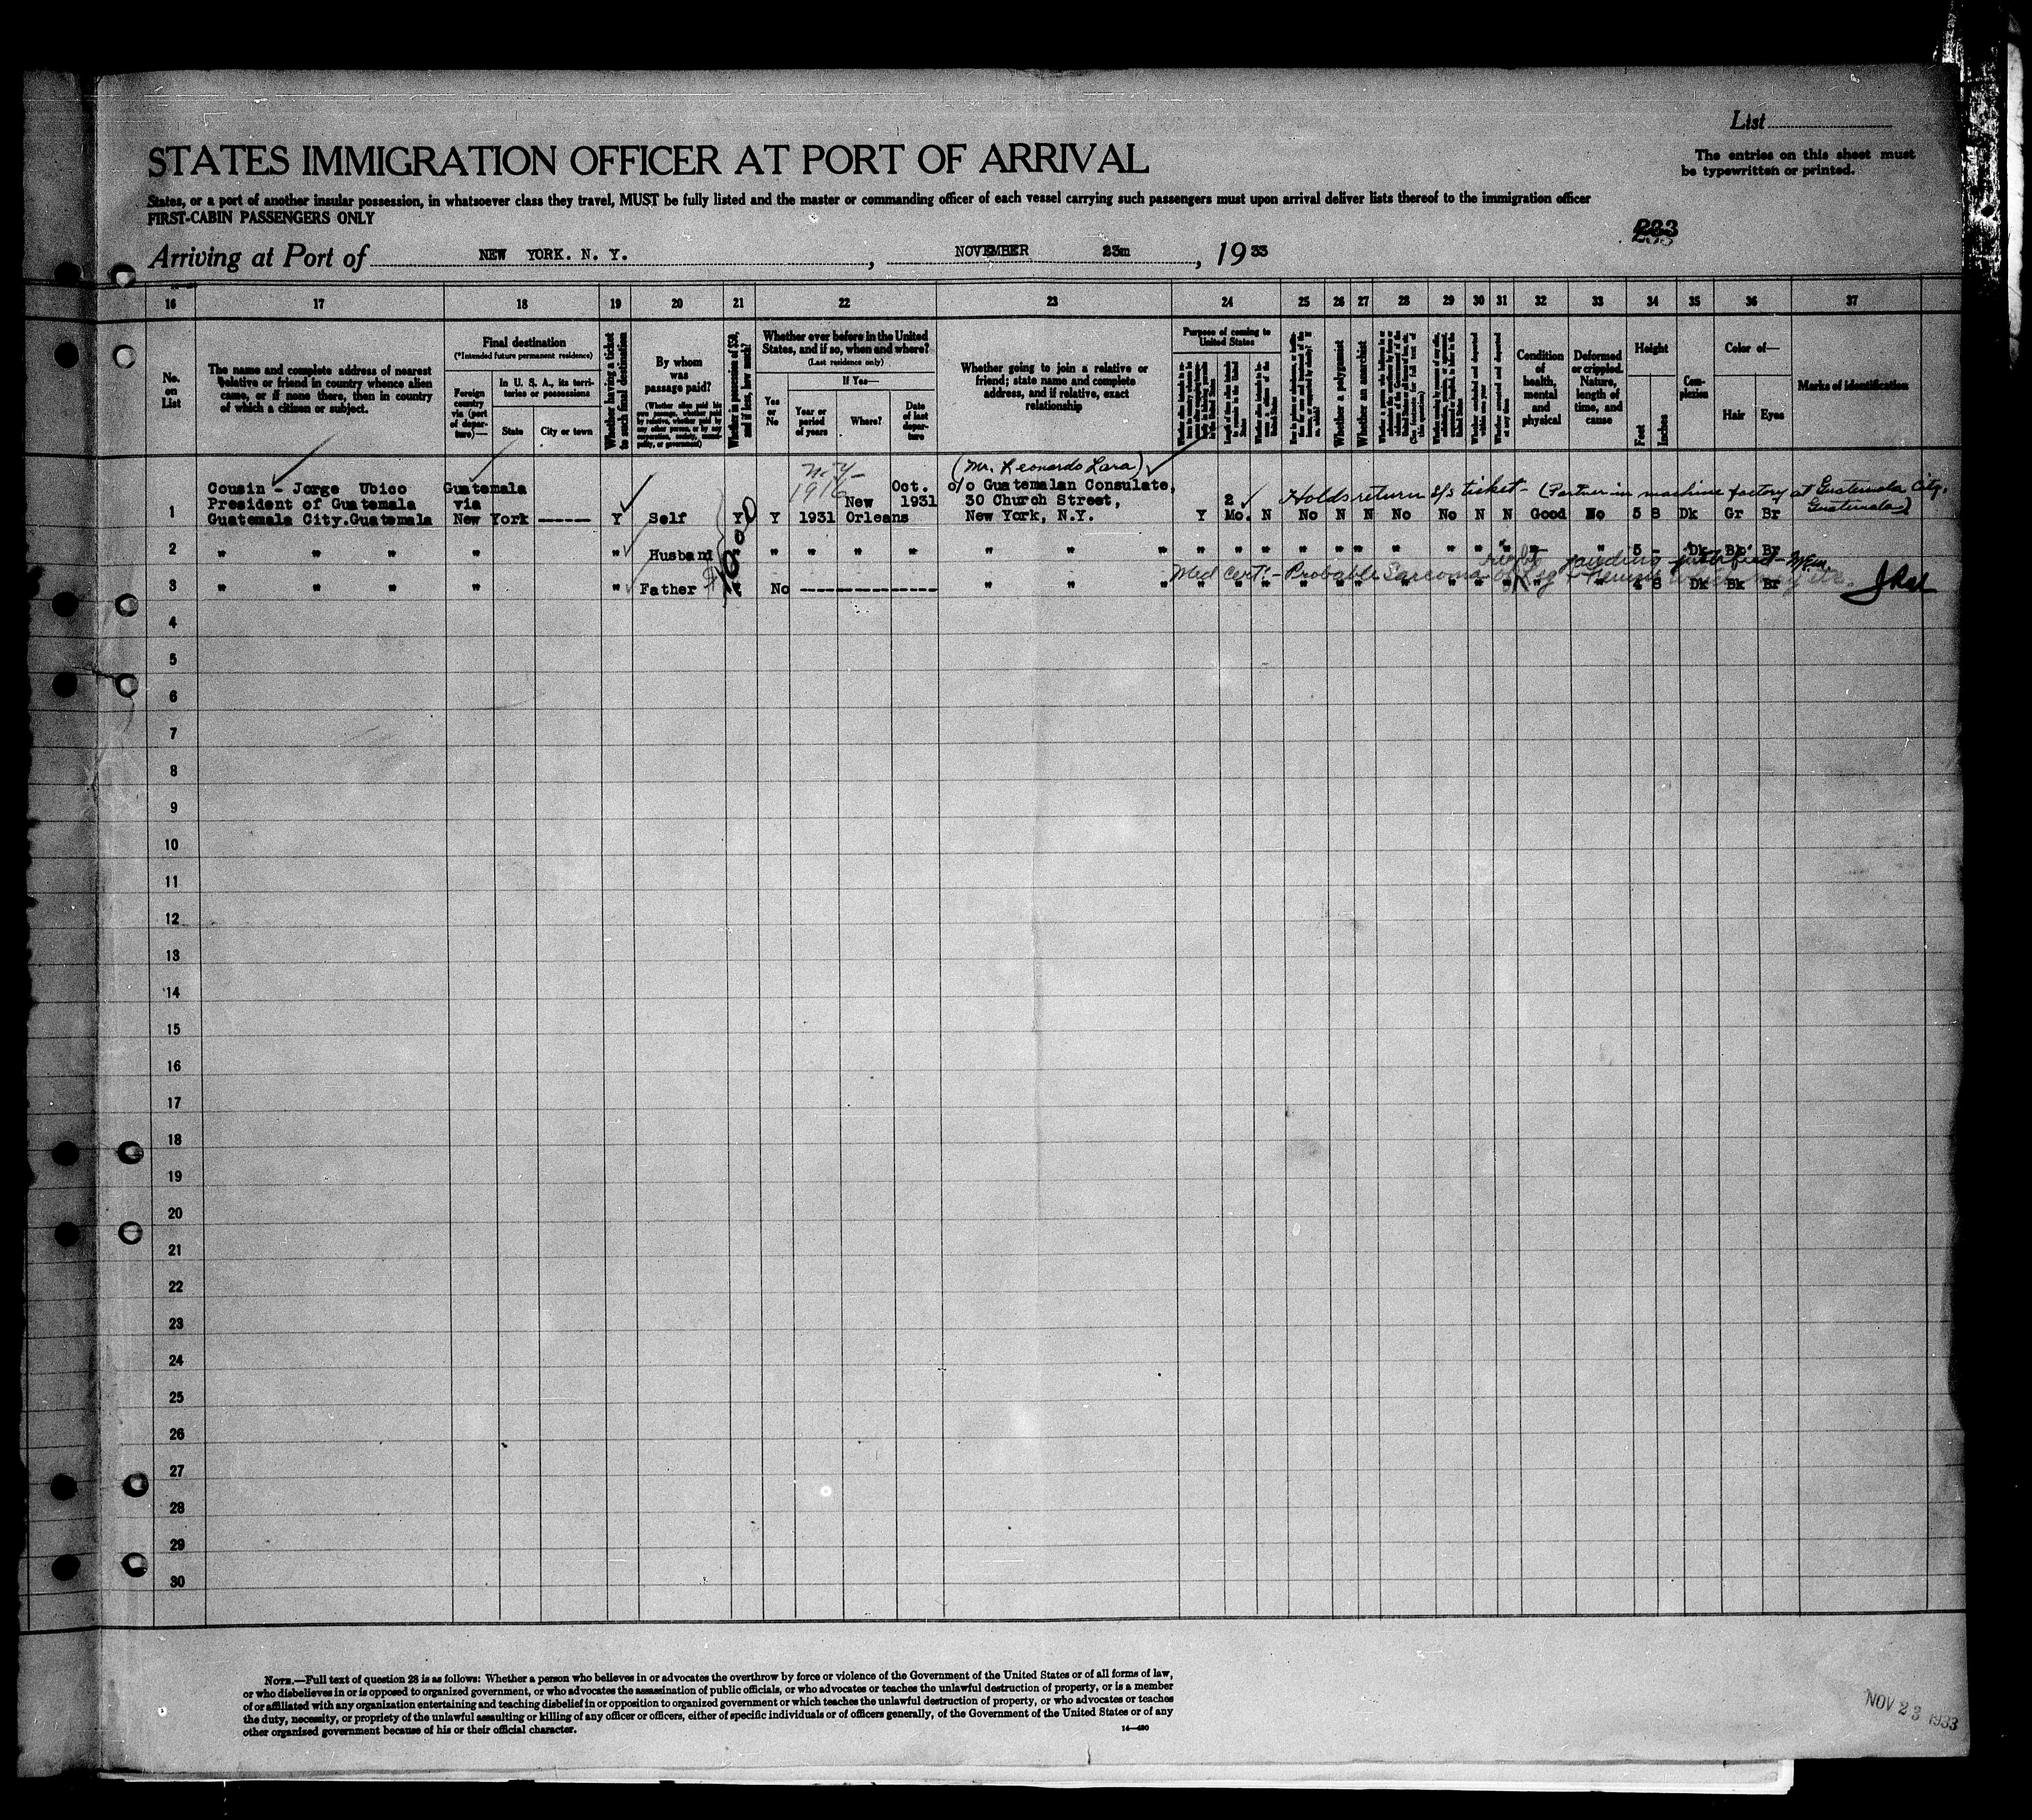 List
STATES IMMIGRATION OFFICER AT PORT OF ARRIVAL
The entries on this sheet must
be typewritten or printed.
States, or a port of another insular possession, in whatsoever class they travel, MUST be fully listed and the master or commanding officer of each vessel carrying such passengers must upon arrival deliver lists thereof to the immigration officer
FIRST-CABIN PASSENGERS ONLY
233
Arriving at Port of NEW YORK. N. Y., NOVEMBER 23rd, 1933
16 17 18 19 20 21 22 23 24 25 26 27 28 29 30 31 32 33 34 35 36 37
No. on List
The name and complete address of nearest relative or friend in country whence alien came, or if none there, then in country of which a citizen or subject.
Final destination
(*Intended future permanent residence)
Foreign country via (port of departure)—
In U. S. A., its territories or possessions
State
City or town
Whether having a ticket to such final destination
By whom was passage paid?
(Whether alien paid his own passage, whether paid by relative, whether paid by any other person, or by any corporation, society, municipality, or government)
Whether in possession of $50, and if less, how much?
Whether ever before in the United States, and if so, when and where?
(Last residence only)
Yes or No
If Yes—
Year or period of years
Where?
Date of last departure
Whether going to join a relative or friend; state name and complete address, and if relative, exact relationship
Purpose of coming to United States
Whether a polygamist
Whether an anarchist
Condition of health, mental and physical
Deformed or crippled. Nature, length of time, and cause
Height
Feet
Inches
Complexion
Color of—
Hair
Eyes
Marks of identification
N.Y.
1916
(Mr. Leonardo Lara)
Cousin - Jorge Ubico Guatemala Oct. c/o Guatemalan Consulate,
Holds return s/s ticket - (Partner in machine factory at Guatemala City,
Guatemala)
President of Guatemala via New 1931 30 Church Street, 2
1 Guatemala City.Guatemala New York ------ Y Self Y Y 1931 Orleans New York, N.Y. Y Mo. N No N N No No N N Good No 5 8 Dk Gr Br
2 " " " " " Husband " " " " " " " " " " " " " " " " " " " " " 5 - Dk Bk Br
Med Cert. - Probable Sarcoma
3 " " " " " Father " No -------------- " " " " " " " " " " " " " " " " 4 8 Dk Bk Br
4
5
6
7
8
9
10
11
12
13
14
15
16
17
18
19
20
21
22
23
24
25
26
27
28
29
30
NOTE.—Full text of question 28 is as follows: Whether a person who believes in or advocates the overthrow by force or violence of the Government of the United States or of all forms of law,
or who disbelieves in or is opposed to organized government, or who advocates the assassination of public officials, or who advocates or teaches the unlawful destruction of property, or is a member
of or affiliated with any organization entertaining and teaching disbelief in or opposition to organized government or which teaches the unlawful destruction of property, or who advocates or teaches
the duty, necessity, or propriety of the unlawful assaulting or killing of any officer or officers, either of specific individuals or of officers generally, of the Government of the United States or of any
other organized government because of his or their official character.
14—480
NOV 23 1933